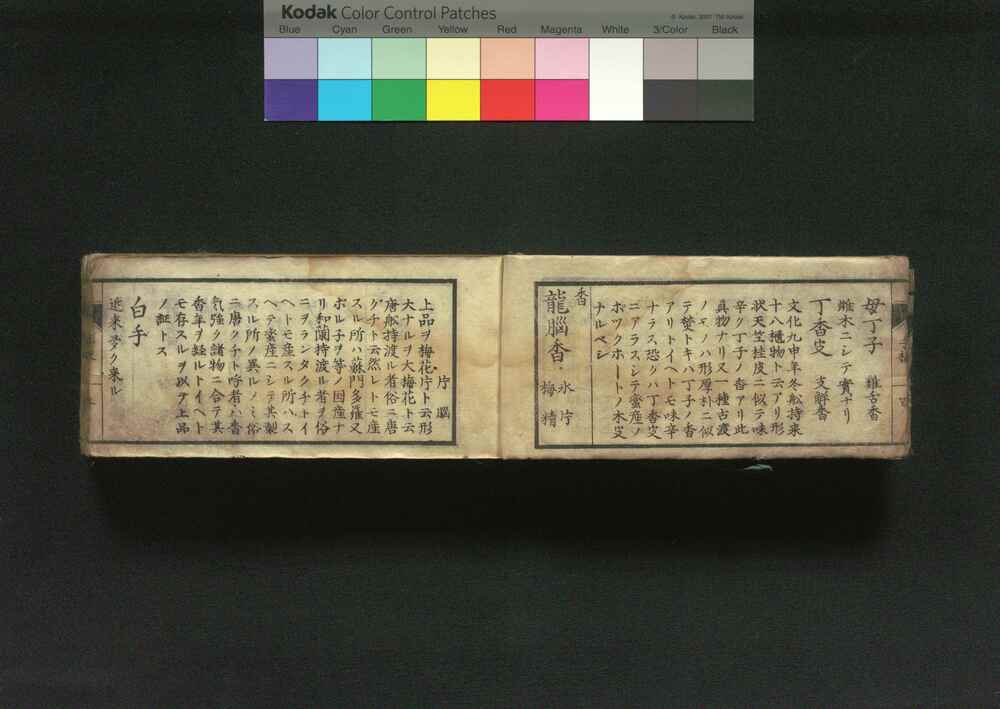 Kodak Color Control Patches
© Kodak, 2007 TM: Kodak
Blue Cyan Green Yellow Red Magenta White 3/Color Black
母丁子 雞舌香
雌木ニシテ實ナリ
丁香皮 支解香
文化九申年冬舩持来
十八樻物ト云アリ形
状天竺桂皮ニ似テ味
辛ク丁子ノ香アリ此
真物ナリ又一種古渡
ノモノハ形厚朴ニ似
テ焚トキハ丁子ノ香
アリトイヘトモ味辛
ナラス恐クハ丁香皮
ニアラスシテ蛮産ノ
ホツクホートノ木皮
ナルベシ
香
龍腦香 氷片
梅精
片腦
上品ヲ梅花片ト云形
大ナルヲ大梅花ト云
唐舩持渡ル者俗ニ唐
グチト云然レトモ産
スル所ハ蘇門多羅又
ボル子ヲ等ノ国産ナ
リ和蘭持渡ル者ヲ俗
ニヲランタクチトイ
ヘトモ産スル所ハス
ヘテ蛮産ニシテ其製
スル所ノ異ルノミ俗
ニ唐クチト呼者ハ香
氣強ク諸物ニ合テ其
香年ヲ経ルトイヘト
モ存スルヲ以テ上品
ノ証トス
白手
近来多ク来ル